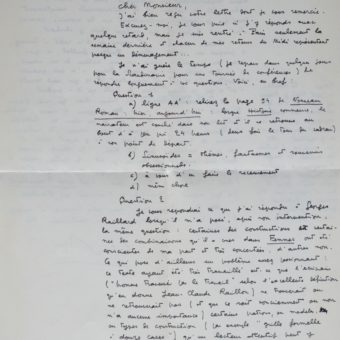 Cher Monsieur,
J'ai bien reçu votre lettre dont je vous remercie.
Excusez-moi, je vous prie si j'y réponds avec
quelque retard, mais je suis rentré à Paris seulement la
semaine dernière et chacun de mes retours du Midi représente
presque un déménagement...
Je n'ai guère le temps (je repars dans quelques jours
pour la
pour une tournée de conférences) de
répondre longuement à vos questions. Voici, en bref.
Question 1
a) ligne AA' : relisez la page 94 de Nouveau
Roman : hier, aujourd'hui : lorsque commence, le
narrateur est couché dans son lit et il se retrouve au
bout de 24 heures (deux fois le tour du cadran)
à son point de départ.
b) Sinusoïdes = thèmes, fantasmes et souvenirs
obsessionnels.
c) à vous d'en faire le recensement
d) même chose
Question 2
Je vous répondrai ce que j'ai répondu à Georges
Raillard lorsqu'il m'a posé, après mon intervention,
la même question : certaines des constructions et certai-
nes des combinaisons qu'il a vues dans Femmes ont été
conscientes de ma part et très concertées, d'autres non.
Ce qui pose d'ailleurs un problème assez passionnant :
ce texte ayant été très travaillé est-ce que l'écrivain
("homme traversé par le travail" selon l'excellente définition
qu'en donne Jean-Claude Raillon) ne trouverait ou
ne retrouverait pas (et que ce soit consciemment ou non
n'a aucune importance) certains patrons, ou modèles,
ou types de construction (par exemple "grille formelle
à douze cases") qu'un lecteur attentif peut y